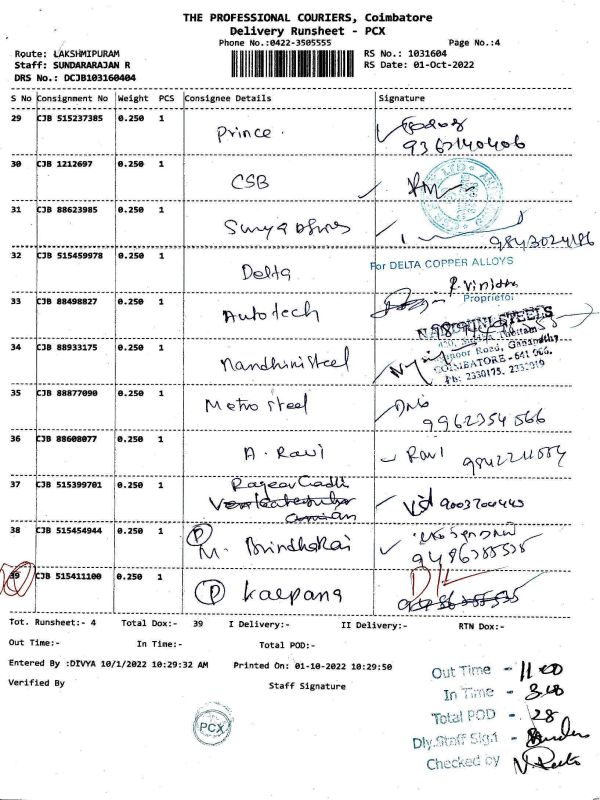 THE PROFESSIONAL COURIERS, Coimbatore
Delivery Runsheet - PCX
Phone No.:0422-3505555 Page No.:4
Route: LAKSHMIPURAM RS No.: 1031604
Staff: SUNDARARAJAN R RS Date: 01-Oct-2022
DRS No.: DCJB103160404
S No Consignment No Weight PCS Consignee Details Signature
29 CJB 515237385 0.250 1 Prince.
9367140406
30 CJB 1212697 0.250 1 CSB
31 CJB 88623985 0.250 1
9843024186
32 CJB 515459978 0.250 1 Delta
For DELTA COPPER ALLOYS
Proprietor
33 CJB 88498827 0.250 1 Autotech
34 CJB 88933175 0.250 1 Nandhini Steel
COIMBATORE - 641 006.
35 CJB 88877090 0.250 1 Metro Steel
9962354566
36 CJB 88608077 0.250 1 A. Ravi Ravi
37 CJB 515399701 0.250 1
9003700443
38 CJB 515454944 0.250 1 P
M.
39 CJB 515411100 0.250 1 P Kalpana DL
Tot. Runsheet:- 4 Total Dox:- 39 I Delivery:- II Delivery:- RTN Dox:-
Out Time:- In Time:- Total POD:-
Entered By :DIVYA 10/1/2022 10:29:32 AM Printed On: 01-10-2022 10:29:50
Verified By Staff Signature
Out Time - 11.00
In Time - 3.00
Total POD - 28
Dly.Staff Sig.1 -
Checked by
PCX